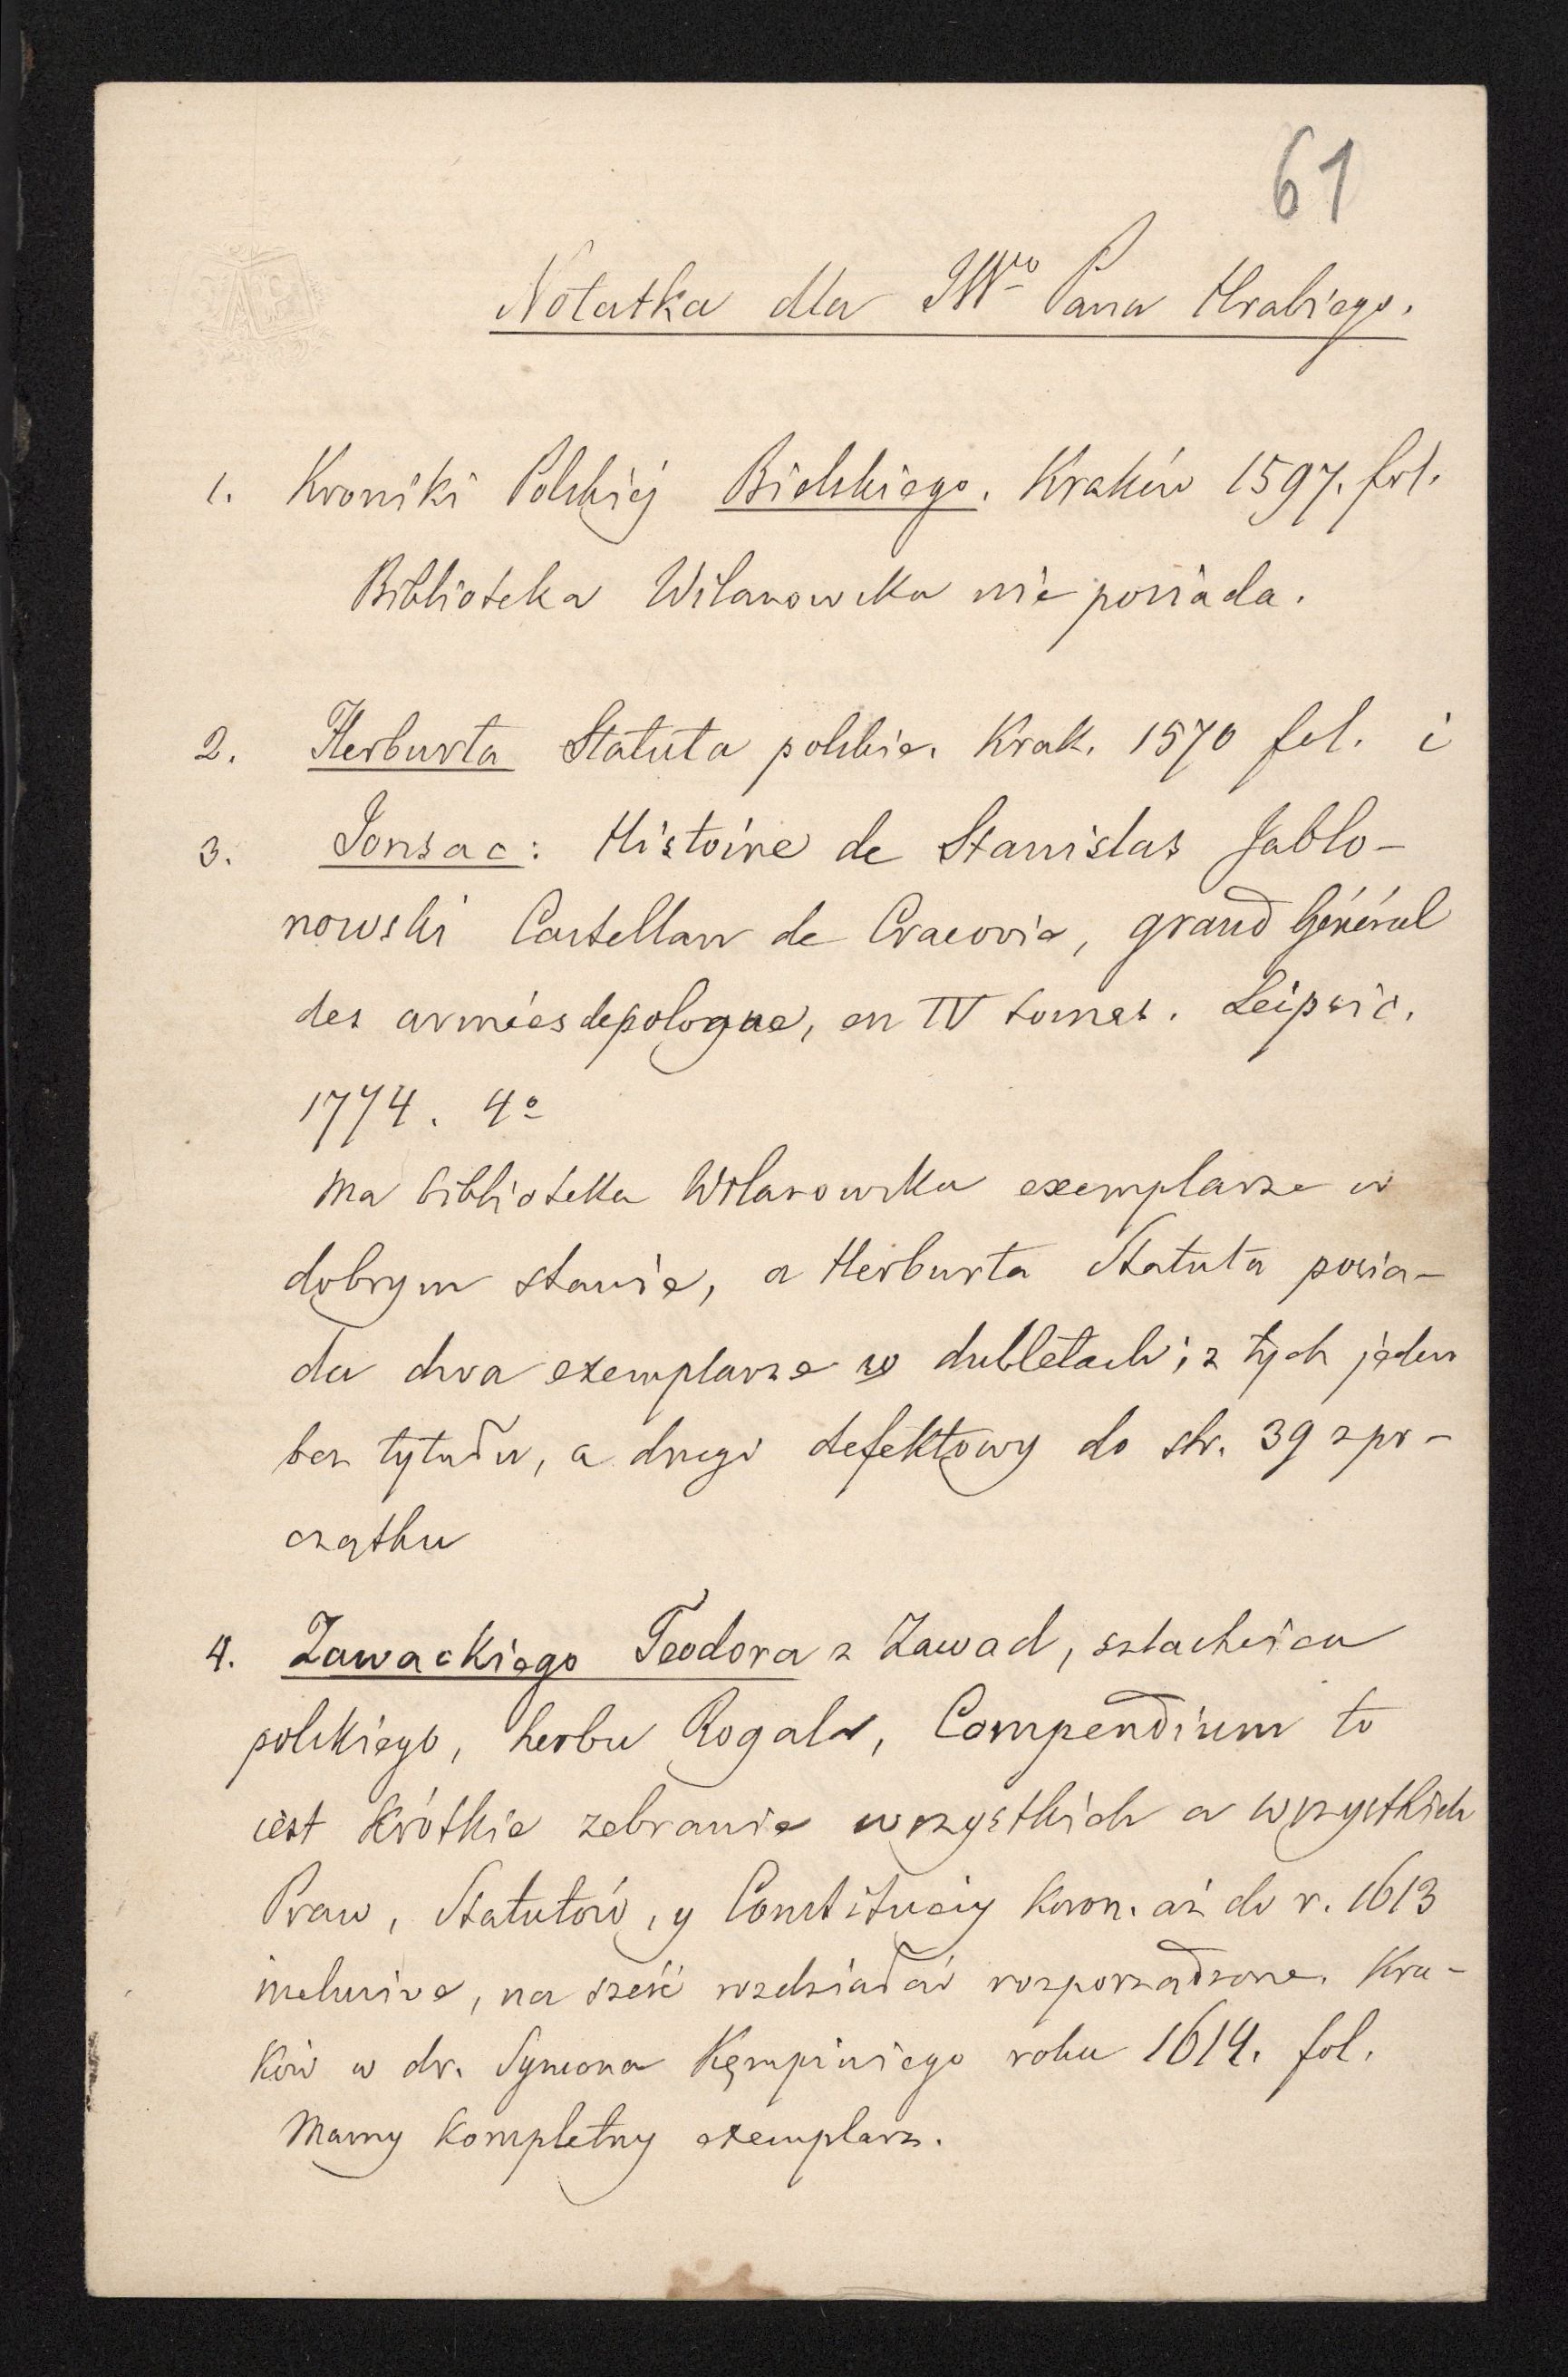 61
Notatka dla JWgo Pana Hrabiego.
1. Kroniki Polskiéj Bielskiego. Kraków 1597. fol.
Biblioteka Wilanowska nie posiada.
2. Herburta Statuta polskie. Krak. 1570 fol. i
3. Jonsac: Histoire de Stanislas Jablo-
nowski Castellan de Cracovie, grand Général
des armées de pologne, en IV tomes. Leipsic.
1774. 4º
Ma biblioteka Wilanowska exemplarze w
dobrym stanie, a Herburta Statuta posia-
da dwa exemplarze w dubletach; z tych jeden
bez tytułu, a drugi defektowy do str. 39 z po-
czątku
4. Zawackiego Teodora z Zawad, szlachcica
polskiego, herbu Rogala, Compendium to
iest krótkie zebranie wszystkich a wszystkich
Praw, Statutów, y Constituciy koron. aż do r. 1613
inclusive, na sześć rozdziałów rozporządzone. Kra-
ków w dr. Symona Kempiniego roku 1614. fol.
Mamy kompletny exemplarz.